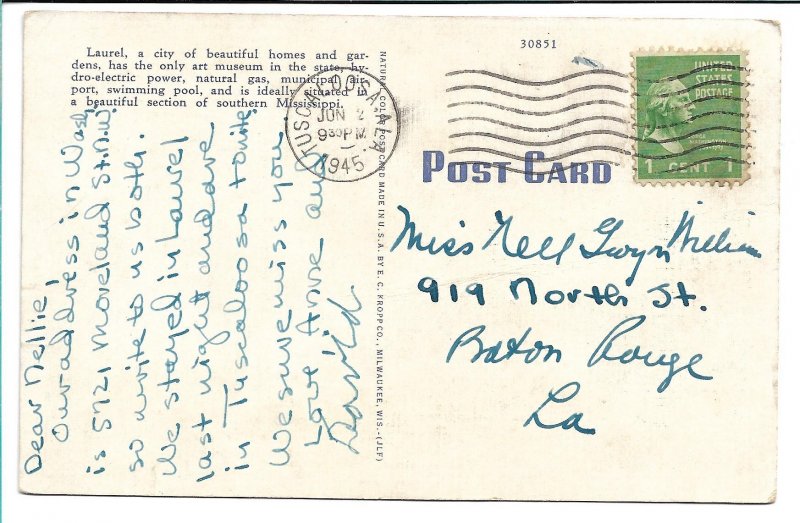 30851
Laurel, a city of beautiful homes and gar-
dens, has the only art museum in the state, hy-
dro-electric power, natural gas, municipal air-
port, swimming pool, and is ideally situated in
a beautiful section of southern Mississippi.
TUSCALOOSA, ALA.
JUN 2
9 30 PM
1945
UNITED
STATES
POSTAGE
WASHINGTON
1 CENT 1
POST CARD
NATURAL COLOR POST CARD MADE IN U.S.A. BY E. C. KROPP CO., MILWAUKEE, WIS.-(JLF)
Dear Nellie,
Our address in Wash.
is 5721 Moreland St. N.W.
so write to us both.
We stayed in Laurel
last night and are
in Tuscaloosa tonite.
We sure miss you.
Love Anne and
David.
Miss Nell Gwyn William
919 North St.
Baton Rouge
La